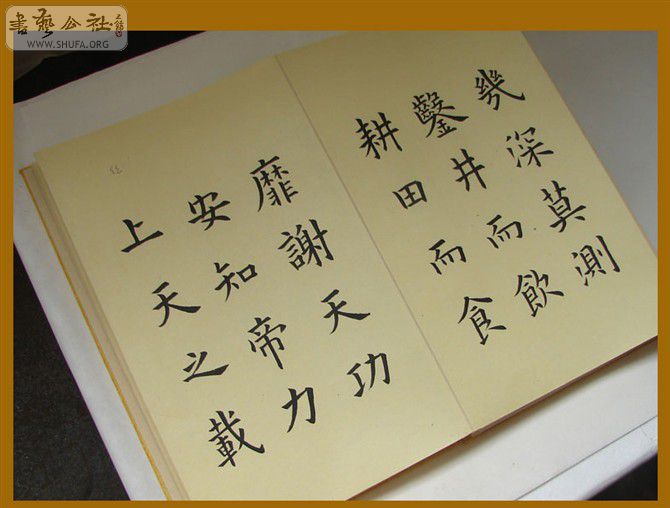 書藝公社
WWW.SHUFA.ORG
幾深莫測
鑿井而飲
耕田而食
靡謝天功
安知帝力
上天之載